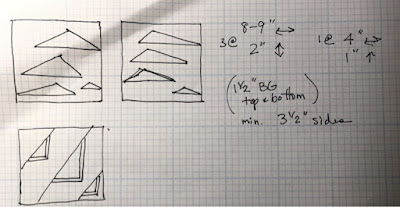 3 @ 8-9" ↔
2" ↕
1 @ 4" ↔
1" ↑
(1 1/2" BG
top & bottom)
min. 3 1/2" sides